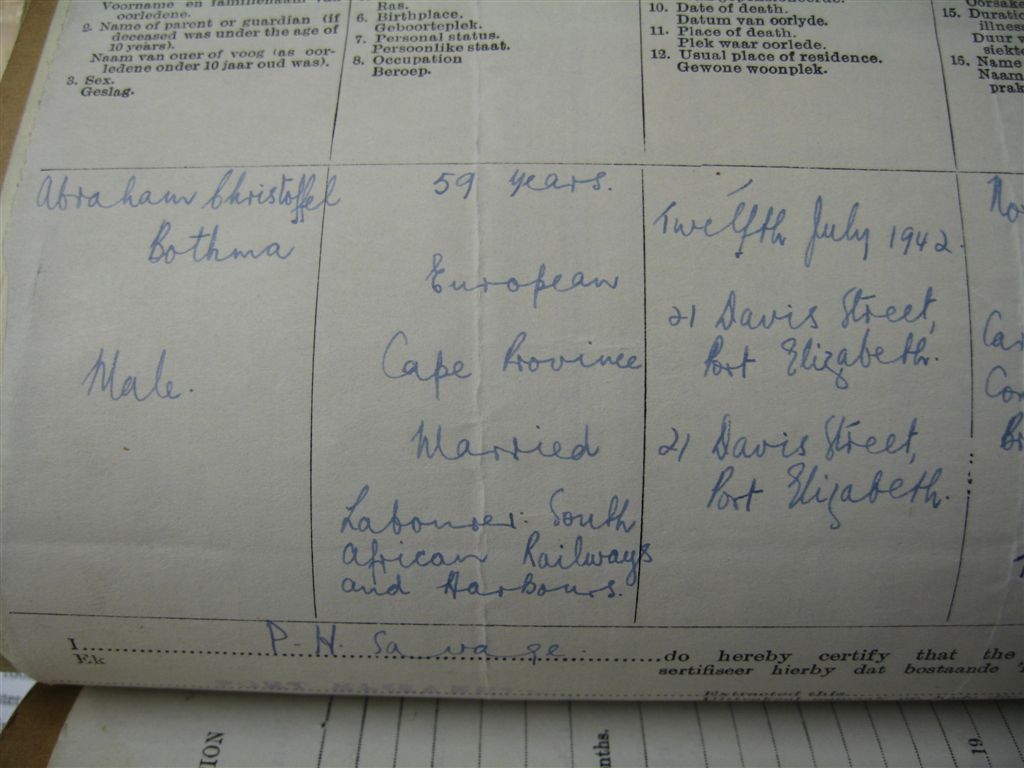 oorledene.
2. Name of parent or guardian (if
deceased was under the age of
10 years).
Naam van ouer of voog (as oor-
ledene onder 10 jaar oud was).
3. Sex.
Geslag.
Ras.
6. Birthplace.
Geboorteplek.
7. Personal status.
Persoonlike staat.
8. Occupation
Beroep.
10. Date of death.
Datum van oorlyde.
11. Place of death.
Plek waar oorlede.
12. Usual place of residence.
Gewone woonplek.
15. Duratio
illness
Duur v
siekte
Name
Naam
prak
Abraham Christoffel
Bothma
Male.
59 years.
European
Cape Province
Married
Labourer: South
African Railways
and Harbours.
Twelfth July 1942.
21 Davis Street,
Port Elizabeth.
21 Davis Street,
Port Elizabeth.
No
Car
Con
Br
I P. H. Savage do hereby certify that the
Ek sertifiseer hierby dat bostaande
Extracted this
ION
nths.
19